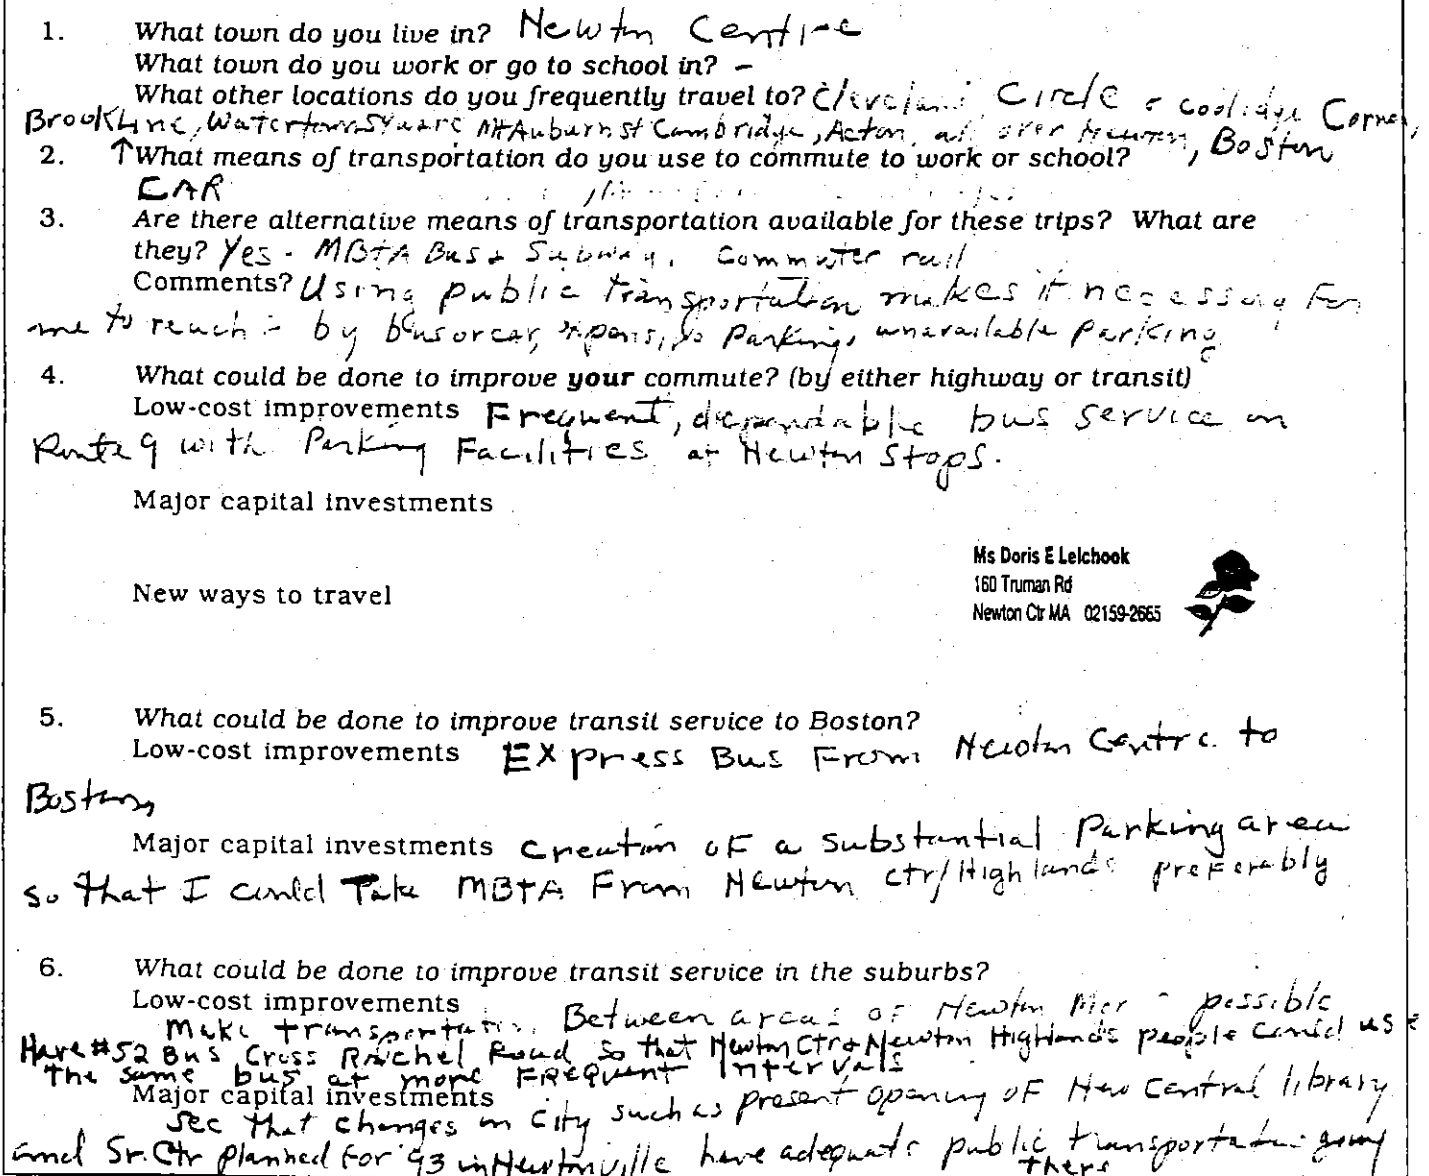 1. What town do you live in? Newton Centre
What town do you work or go to school in? -
What other locations do you frequently travel to? Cleveland Circle & Coolidge Corner,
Brookline, Watertown Square Mt Auburn St Cambridge, Acton, all over Newton, Boston
2. ↑What means of transportation do you use to commute to work or school?
CAR
3. Are there alternative means of transportation available for these trips? What are
they? Yes - MBTA Bus & Subway, Commuter rail
Comments? Using public transportation makes it necessary For
me to reach by bus or car, expensive Parking, unavailable parking
4. What could be done to improve your commute? (by either highway or transit)
Low-cost improvements Frequent, dependable bus service on
Route 9 with Parking Facilities at Newton Stops.
Major capital investments
Ms Doris E Lelchook
160 Truman Rd
New ways to travel
Newton Ctr MA 02159-2665
5. What could be done to improve transit service to Boston?
Low-cost improvements EXpress Bus From Newton Centre to
Boston,
Major capital investments Creation oF a substantial Parking area
so that I could Take MBTA From Newton Ctr/Highlands preferably
6. What could be done to improve transit service in the suburbs?
Low-cost improvements
Make transportation Between areas oF Newton possible
Have #52 Bus Cross Rachel Road so that Newton Ctr & Newton Highlands people could use
the same bus at more FREquent Intervals
Major capital investments
see that changes in City such as present opening oF New Central library
and Sr. Ctr planned for '93 in Newtonville have adequate public transportation going
there